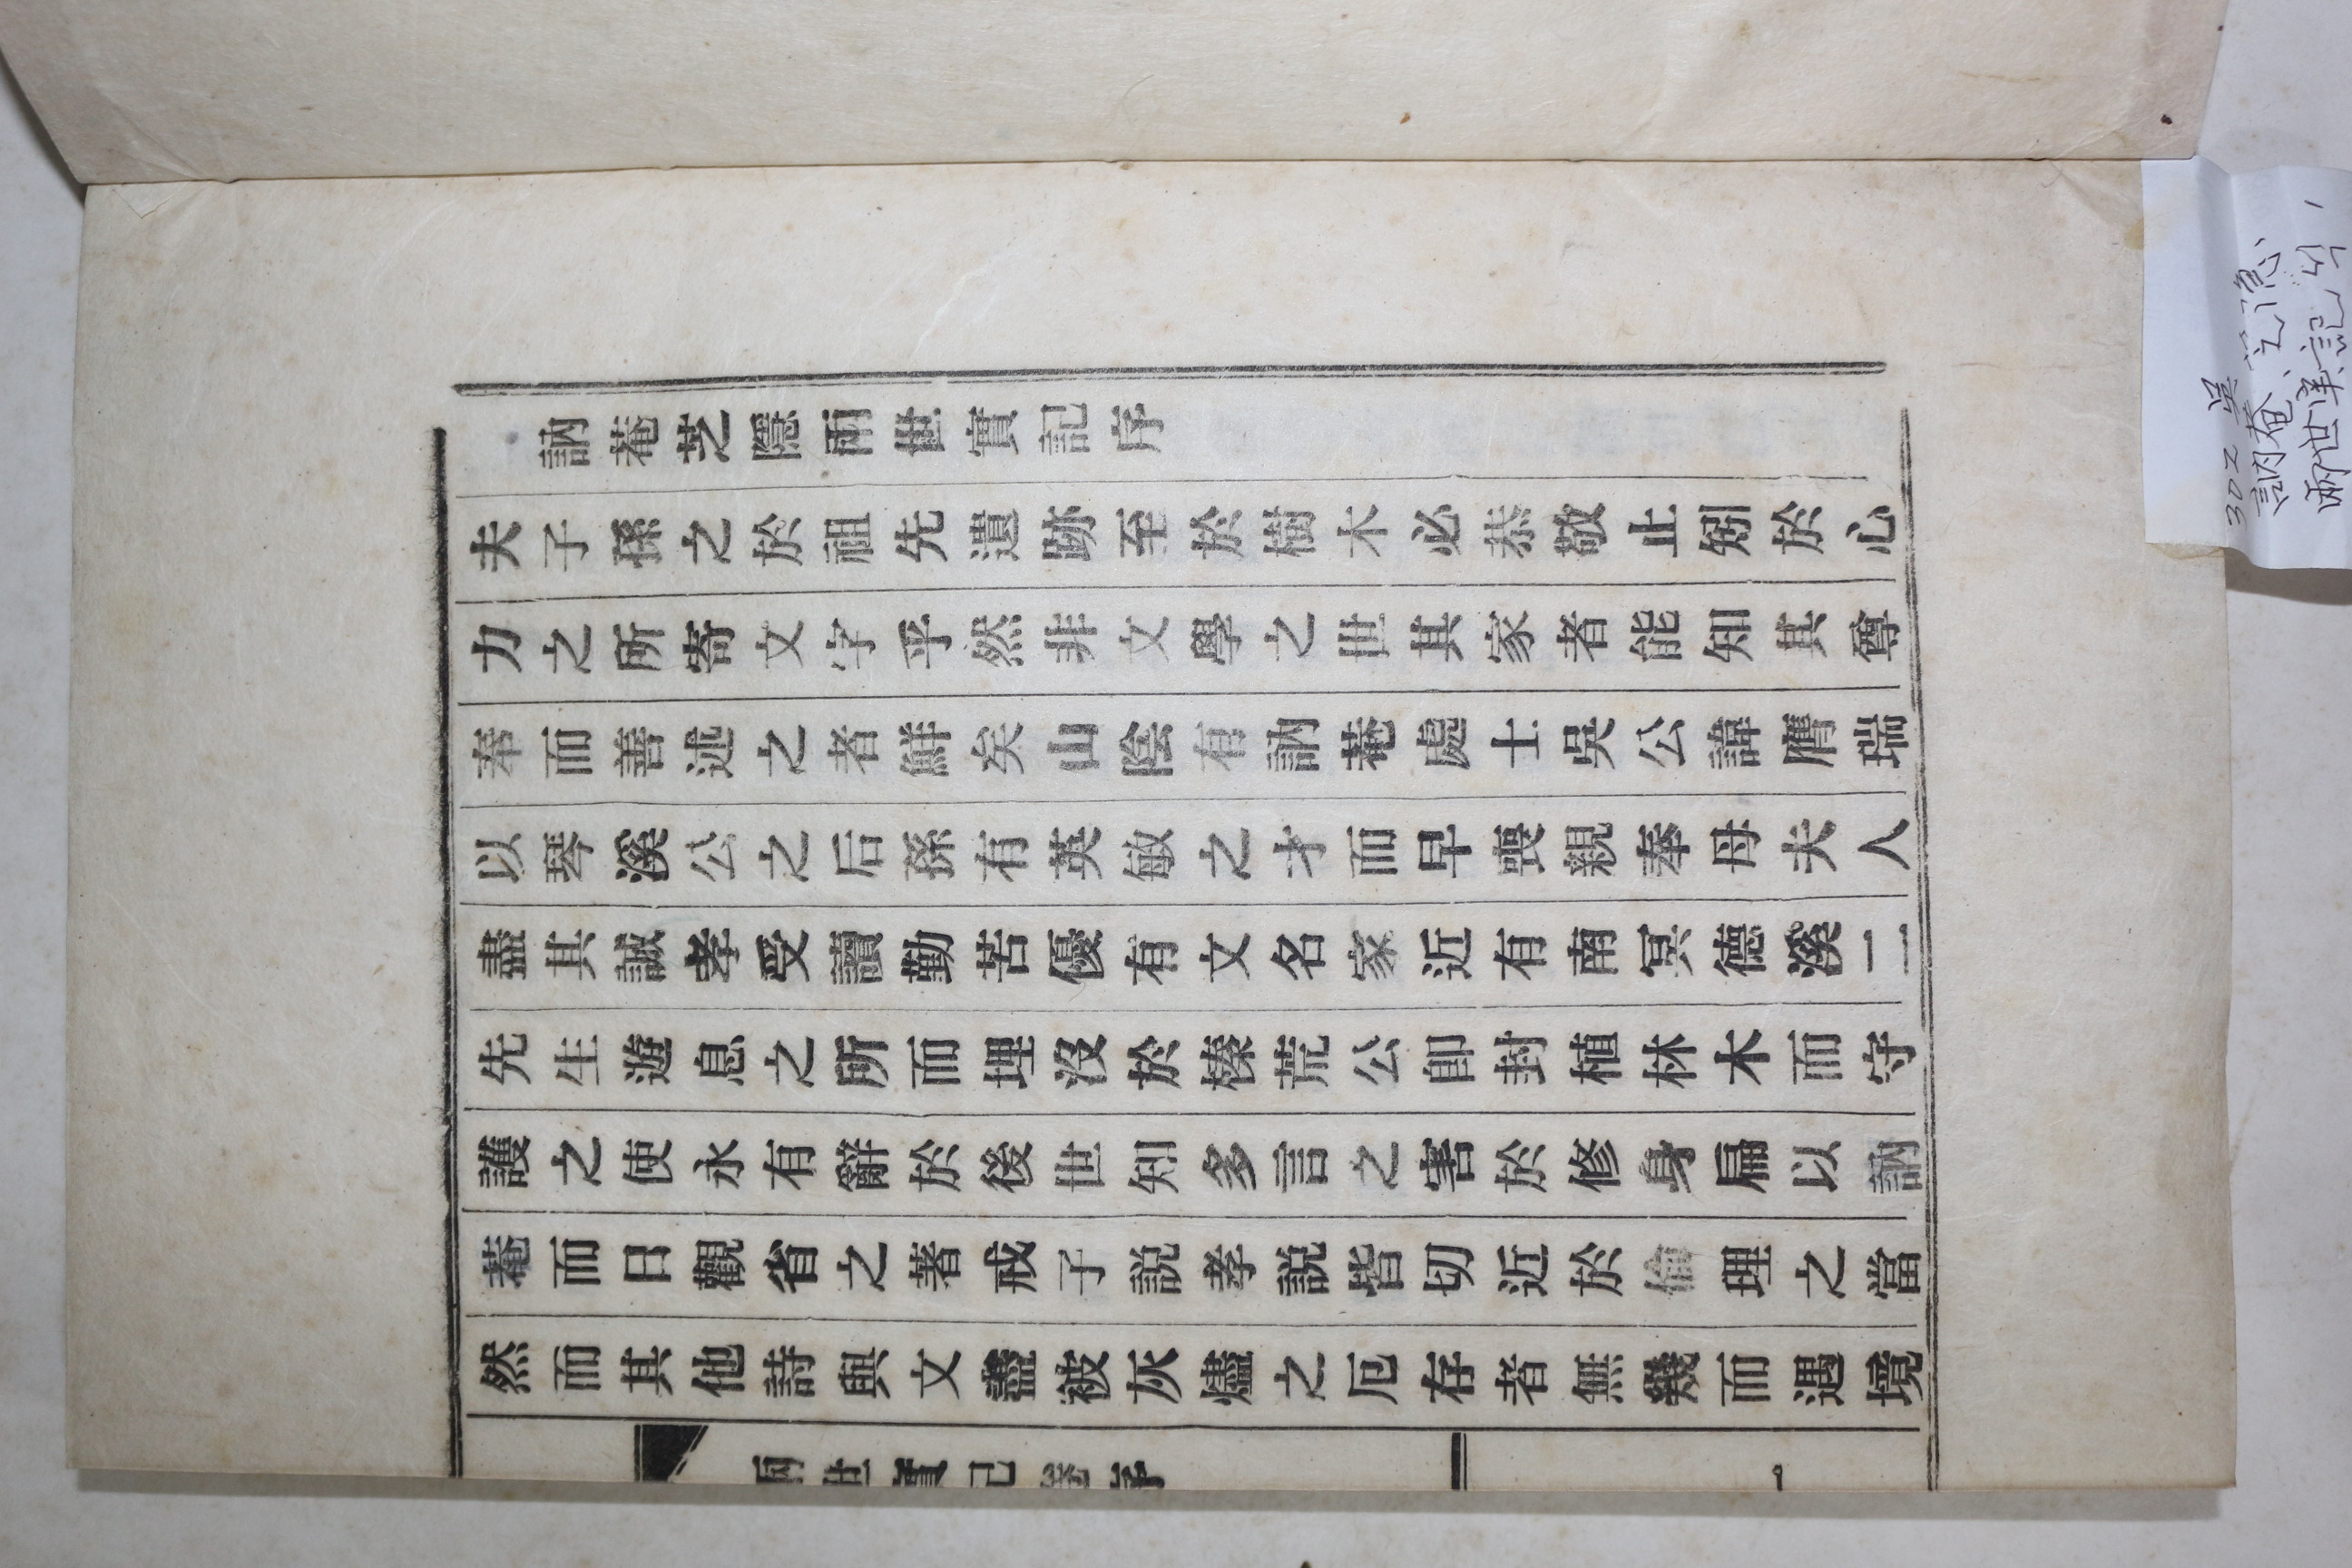 訥菴芝隱兩世實記序
夫子孫之於祖先遺跡至於樹木必恭敬止矧於心
力之所寄文字乎然非文學之世其家者能知其尊
奉而善述之者鮮矣山陰有訥菴處士吳公諱膺瑞
以琴溪公之后孫有英敏之才而早喪親奉母夫人
盡其誠孝受讀勤苦優有文名家近有南冥德溪二
先生遊息之所而埋沒於榛荒公卽封植林木而守
護之使永有辭於後世知多言之害於修身扁以訥
菴而日觀省之著戒子説孝説皆切近於倫理之當
然而其他詩與文盡被灰燼之厄存者無幾而遇境
兩世實記卷序
一
302 吳
訥菴、芝隐
兩世実記